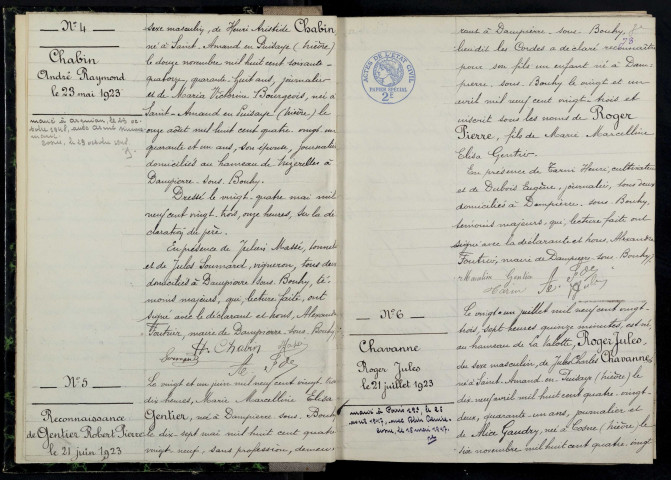 N° 4
Chabin
André Raymond
le 23 mai 1923
sexe masculin, de Henri Aristide Chabin
né à Saint-Amand en Puisaye (Nièvre)
le douze novembre mil huit cent soixante-
quatorze, quarante-huit ans, journalier
et de Maria Victorine Bourgeois, née à
Saint-Amand en Puisaye (Nièvre) le
onze août mil huit cent quatre-vingt-un
quarante et un ans, son épouse, journaliers
domiciliés au hameau de
à Dampierre-sous-Bouhy.
Dressé le vingt-quatre mai mil
neuf cent vingt-trois, onze heures, sur la dé-
claration du père.
En présence de Julien Massé, tonnelier
et de Jules, vigneron, tous deux
domiciliés à Dampierre sous Bouhy, té-
moins majeurs, qui, lecture faite, ont
signé avec le déclarant et Nous, Alexandre
Foutrier, maire de Dampierre-sous-Bouhy.
H Chabin
N° 5
Reconnaissance
de Gentier Robert Pierre
le 21 juin 1923
Le vingt et un juin mil neuf cent vingt-trois
dix heures, Marie Marcelline Elisa
Gentier, née à Dampierre-sous-Bouhy
le dix-sept mai mil huit cent quatre
vingt-neuf, sans profession, demeu-
23
rant à Dampierre-sous-Bouhy,
lieudit les Cordes a déclaré reconnaître
pour son fils un enfant né à Dam-
pierre-sous-Bouhy le vingt et un
avril mil neuf cent vingt-trois et
inscrit sous les noms de Roger
Pierre, fils de Marie Marcelline
Elisa Gentier.
En présence de Henri, cultivateur
et de Dubois Eugène, journalier, tous deux
domiciliés à Dampierre-sous-Bouhy,
témoins majeurs, qui, lecture faite ont
signé avec la déclarante et Nous, Alexandre
Foutrier, maire de Dampierre-sous-Bouhy.
ACTES DE L'ÉTAT CIVIL
PAPIER SPÉCIAL
2F
N° 6
Chavanne
Roger Jules
le 21 juillet 1923
marié à Paris
Le vingt un juillet mil neuf cent vingt-
trois, sept heures quinze minutes, est né
au hameau de la, Roger Jules,
du sexe masculin, de Jules Charles Chavanne
né à Saint-Amand-en-Puisaye (Nièvre) le
dix neuf avril mil huit cent quatre-vingt-
deux, quarante-un ans, journalier et
de Alice Gaudry, née à Cosne (Nièvre) le
six novembre mil huit cent quatre-vingt